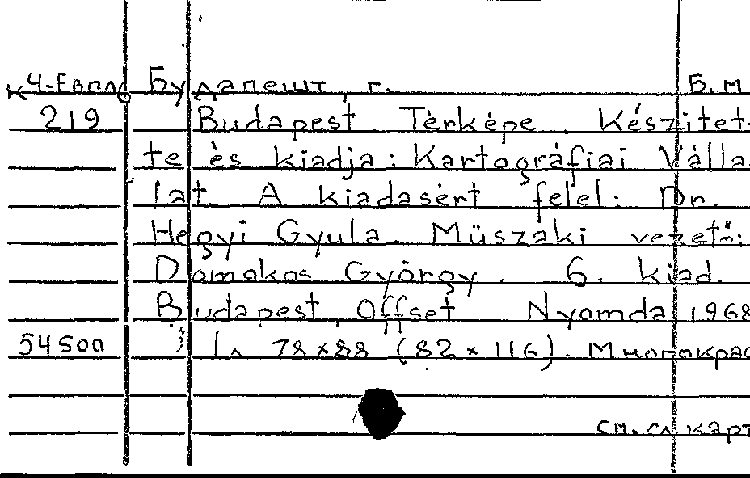 К 4-Евпо Будапешт, г. Б.м
219 Budapest Térképe. Készitet-
te és kiadja: Kartográfiai Válla-
lat A kiadasért felel: Dr.
Hegyi Gyula. Müszaki vezetö:
Domokos György. 6. kiad.
Budapest, Offset Nyomda, 1968
54500 1л 78×88 (82×116). Многокрас
см. сл карт